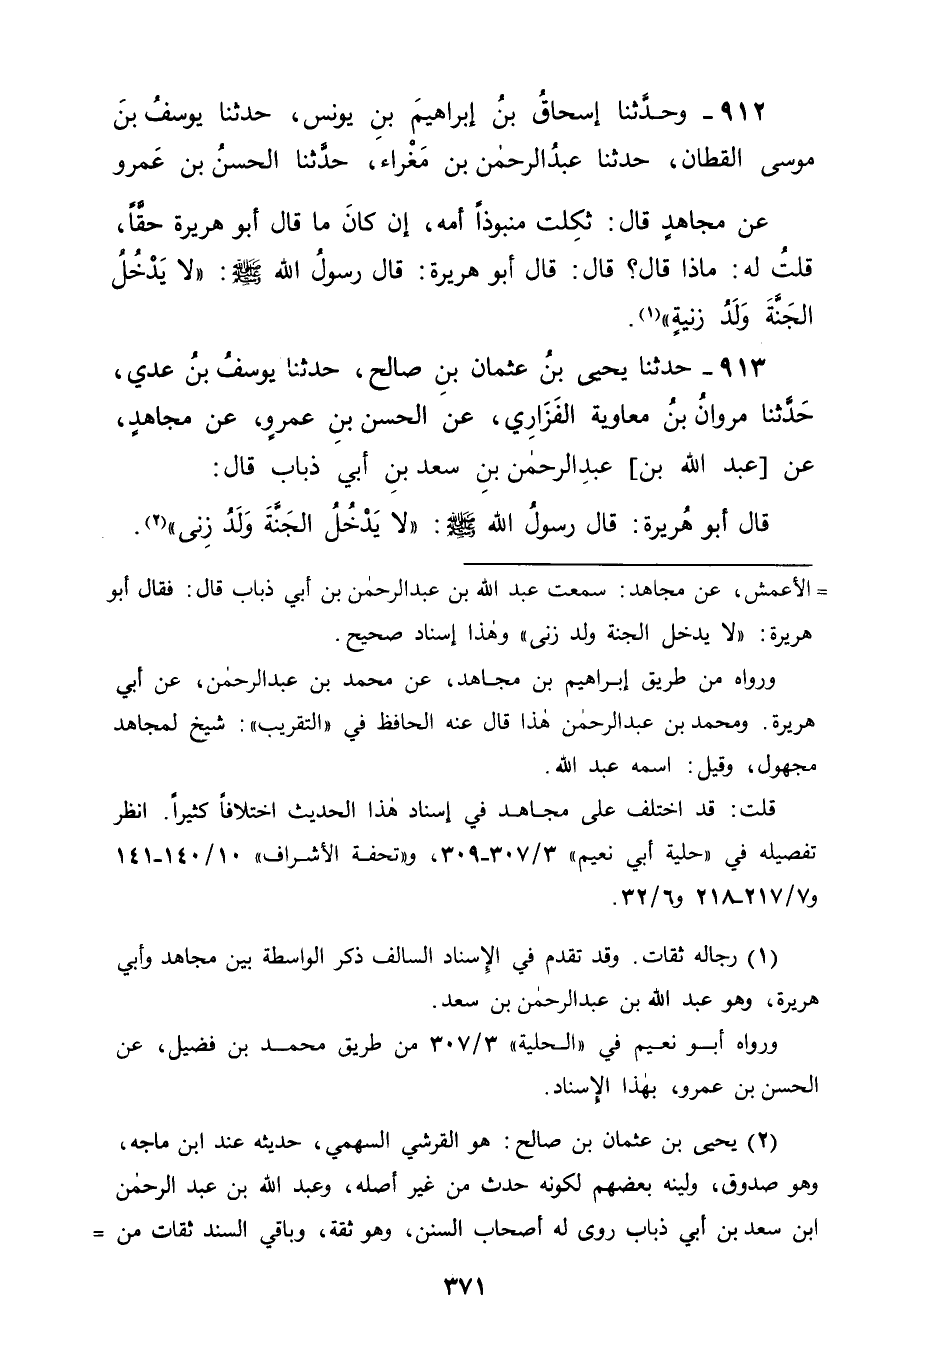 ٩١٢ـ وحـدَّثنا إسحاقُ بنُ إبراهيمَ بنِ يونس، حدثنا يوسفُ بنَ
موسى القطان، حدثنا عبدُالرحمٰن بن مَغْراء، حدَّثنا الحسنُ بن عَمرو
عن مجاهدٍ قال: ثَكِلت منبوذاً أمه، إن كانَ ما قال أبو هريرة حقًّاً،
قلتُ له: ماذا قال؟ قال: قال أبو هريرة: قال رسولُ الله ﷺ: «لا يَدْخُلُ
الجَنَّةَ وَلَدُ زنيةٍ»(١).
٩١٣ـ حدثنا يحيى بنُ عثمان بنِ صالح، حدثنا يوسفُ بنُ عدي،
حَدَّثنا مروانُ بنُ معاوية الفَزَاري، عن الحسن بنِ عمروٍ، عن مجاهدٍ،
عن [عبد الله بن] عبدِالرحمٰن بنِ سعد بنِ أبي ذباب قال:
قال أبو هُريرة: قال رسولُ الله ﷺ: «لا يَدْخُلُ الجَنَّةَ وَلَدُ زِنى»(٢).
= الأعمش، عن مجاهد: سمعت عبد الله بن عبدالرحمٰن بن أبي ذباب قال: فقال أبو
هريرة: «لا يدخل الجنة ولد زنى» وهٰذا إسناد صحيح.
ورواه من طريق إبـراهيم بن مجـاهد، عن محمد بن عبدالرحمٰن، عن أبي
هريرة. ومحمد بن عبدالرحمٰن هٰذا قال عنه الحافظ في «التقريب»: شيخ لمجاهد
مجهول، وقيل: اسمه عبد الله.
قلت: قد اختلف على مجـاهـد في إسناد هٰذا الحديث اختلافاً كثيراً. انظر
تفصيله في «حلية أبي نعيم» ٣٠٧/٣ـ٣٠٩، و«تحفـة الأشـراف» ١٤٠/١٠ـ١٤١
و٢١٧/٧ـ٢١٨ و٣٢/٦.
(١) رجاله ثقات. وقد تقدم في الإسناد السالف ذكر الواسطة بين مجاهد وأبي
هريرة، وهو عبد الله بن عبدالرحمٰن بن سعد.
ورواه أبـو نعـيم في «الـحلية» ٣٠٧/٣ من طريق محمـد بن فضيل، عن
الحسن بن عمرو، بهٰذا الإسناد.
(٢) يحيى بن عثمان بن صالح: هو القرشي السهمي، حديثه عند ابن ماجه،
وهو صدوق، ولينه بعضهم لكونه حدث من غير أصله، وعبد الله بن عبد الرحمٰن
ابن سعد بن أبي ذباب روى له أصحاب السنن، وهو ثقة، وباقي السند ثقات من =
٣٧١